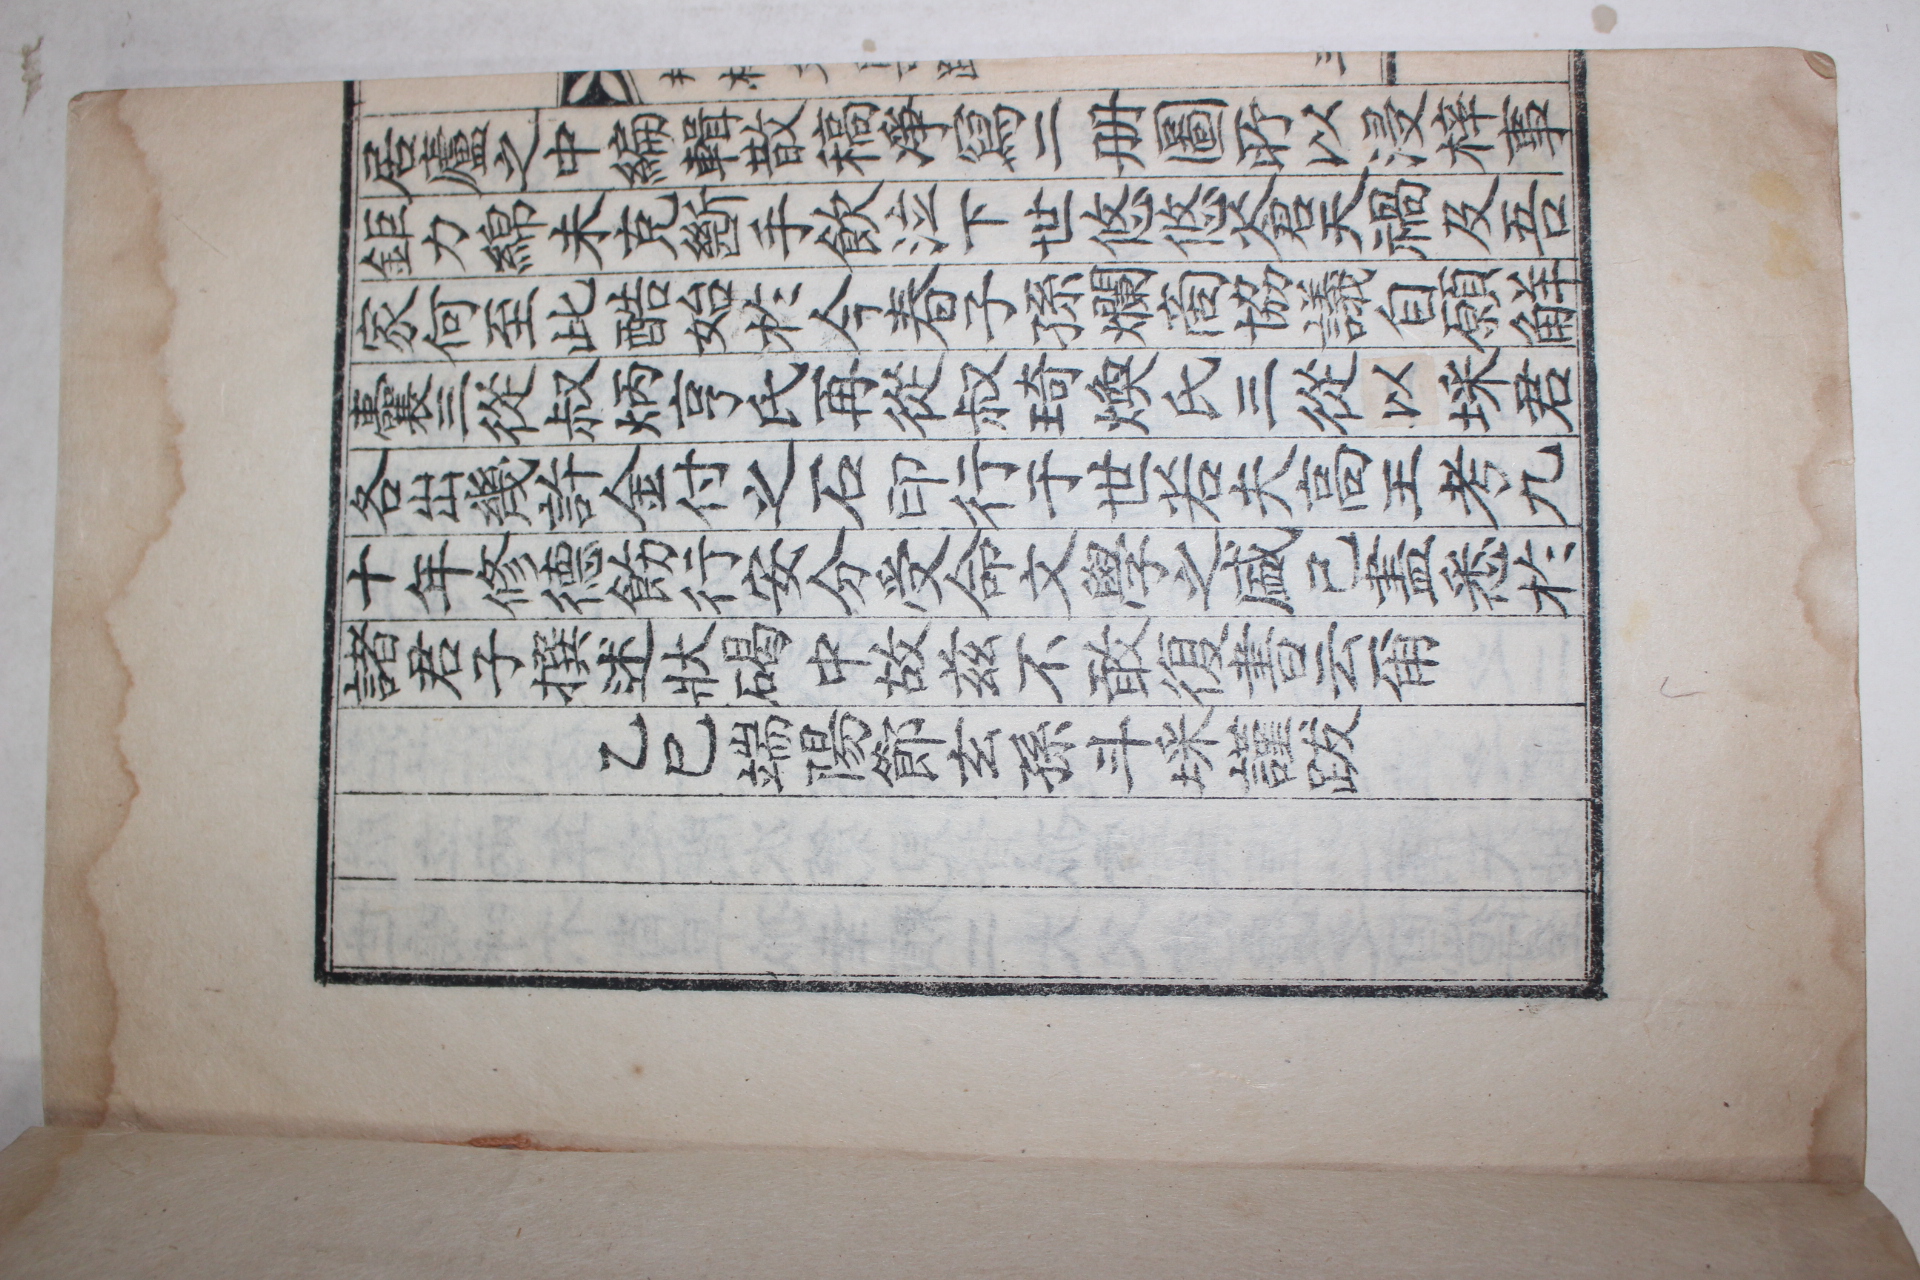 居廬之中編輯散稿淨寫二册圖所以浸梓事
鉅力綿未克斷手飮泣下世悠悠蒼天禍及吾
家何至此酷始於今春子孫爛啇協議自願解
囊三從叔炳亨氏再從叔琦煥氏三從以埰君
各出幾許金付之石印行于世若夫高王考九
十年修德飭行安分受命文學之盛已盡悉於
諸君子撰述狀碣中故兹不敢復書云爾
乙巳端陽節玄孫斗埰謹跋
三